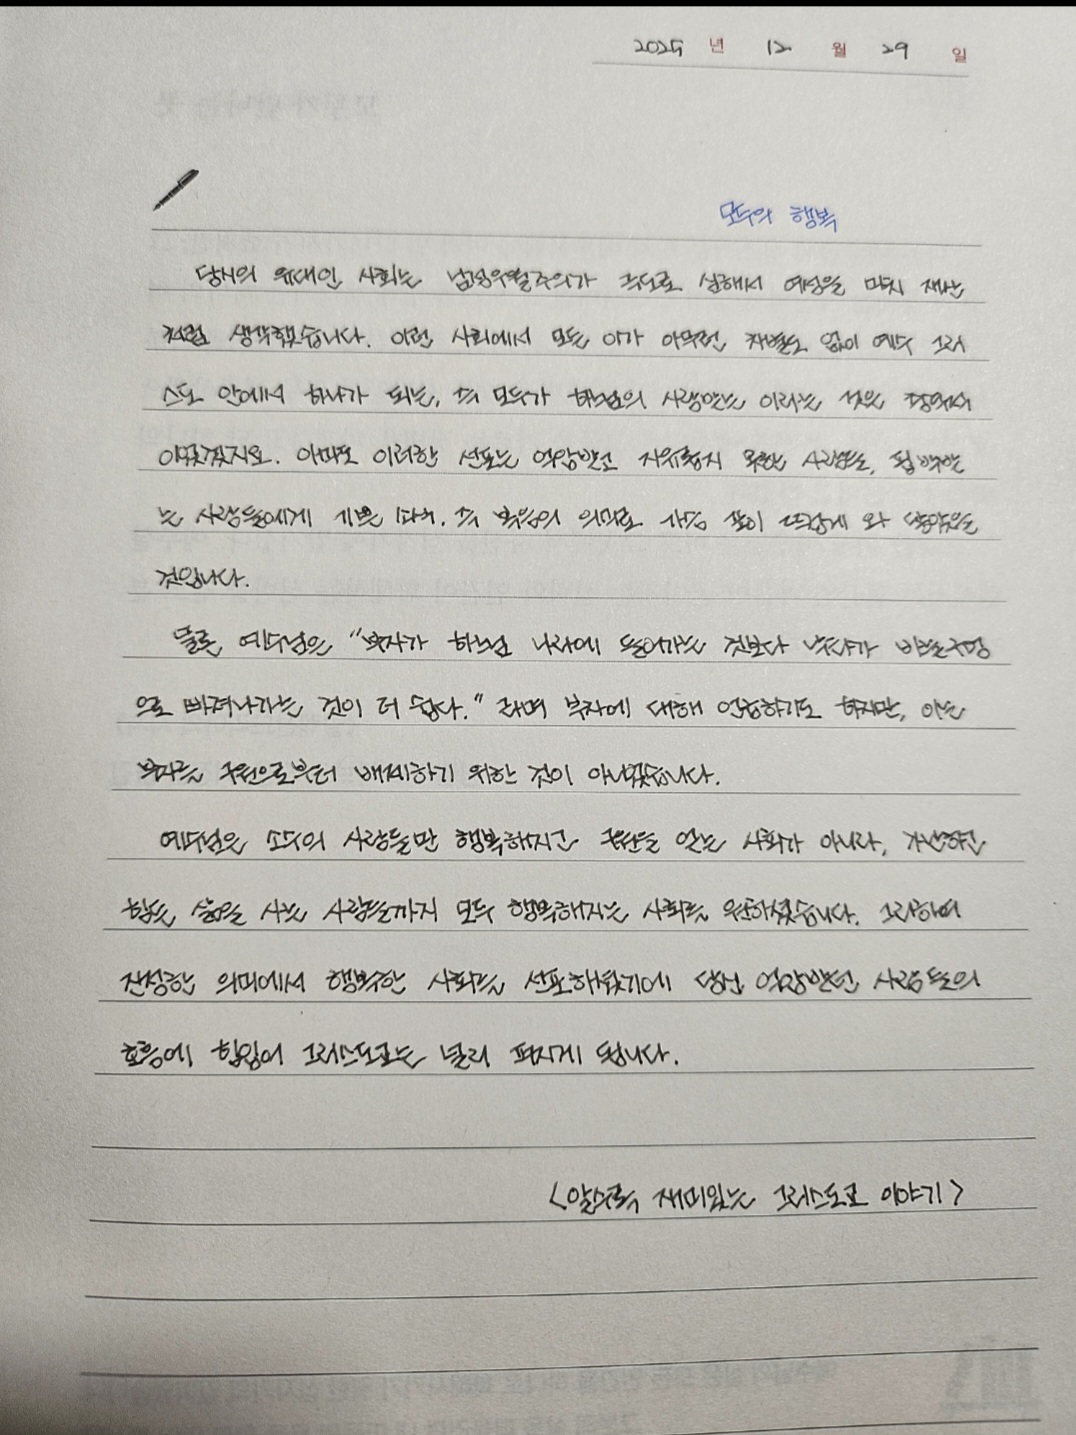 2025 년 12 월 29 일
모두의 행복
당시의 유대인 사회는 남성우월주의가 극도로 심해서 여성을 마치 재산
처럼 생각했습니다. 이런 사회에서 모든 이가 아무런 차별도 없이 예수 그리
스도 안에서 하나가 되는, 즉 모두가 하느님의 사랑받는 이라는 것은
이었겠지요. 아마도 이러한 선포는 억압받고 자유롭지 못한 사람들, 핍박받
는 사람들에게 기쁜 소식, 즉 복음의 의미로 가장 깊이 뜨겁게 와 닿았을
것입니다.
물론 예수님은 "부자가 하느님 나라에 들어가는 것보다 낙타가 바늘구멍
으로 빠져나가는 것이 더 쉽다." 라며 부자에 대해 언급하기도 하지만, 이는
부자를 구원으로부터 배제하기 위한 것이 아니었습니다.
예수님은 소수의 사람들만 행복해지고 구원을 얻는 사회가 아니라, 가난하고
힘든 삶을 사는 사람들까지 모두 행복해지는 사회를 원하셨습니다. 그리하여
진정한 의미에서 행복한 사회를 선포하셨기에 당신 억압받던 사람들의
호응에 힘입어 그리스도교는 널리 퍼지게 됩니다.
<알수록 재미있는 그리스도교 이야기>